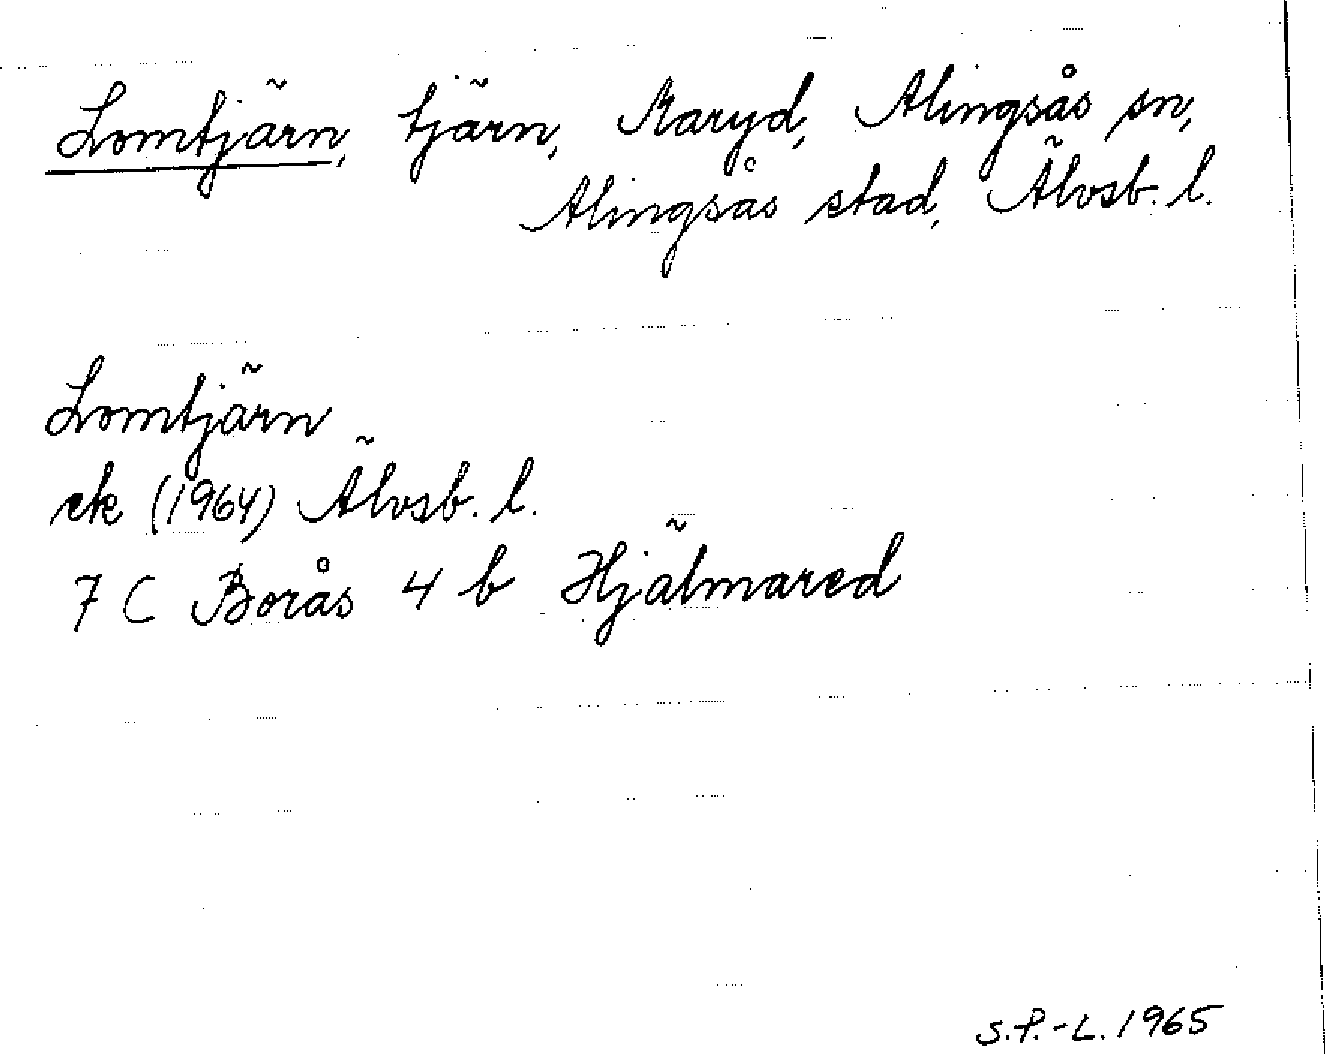 Lomtjärn, tjärn, Maryd, Alingsås sn,
Alingsås stad, Älvsb. l.
Lomtjärn
ek (1964) Älvsb. l.
7 C Borås 4 b Hjälmared
S.P.-L. 1965